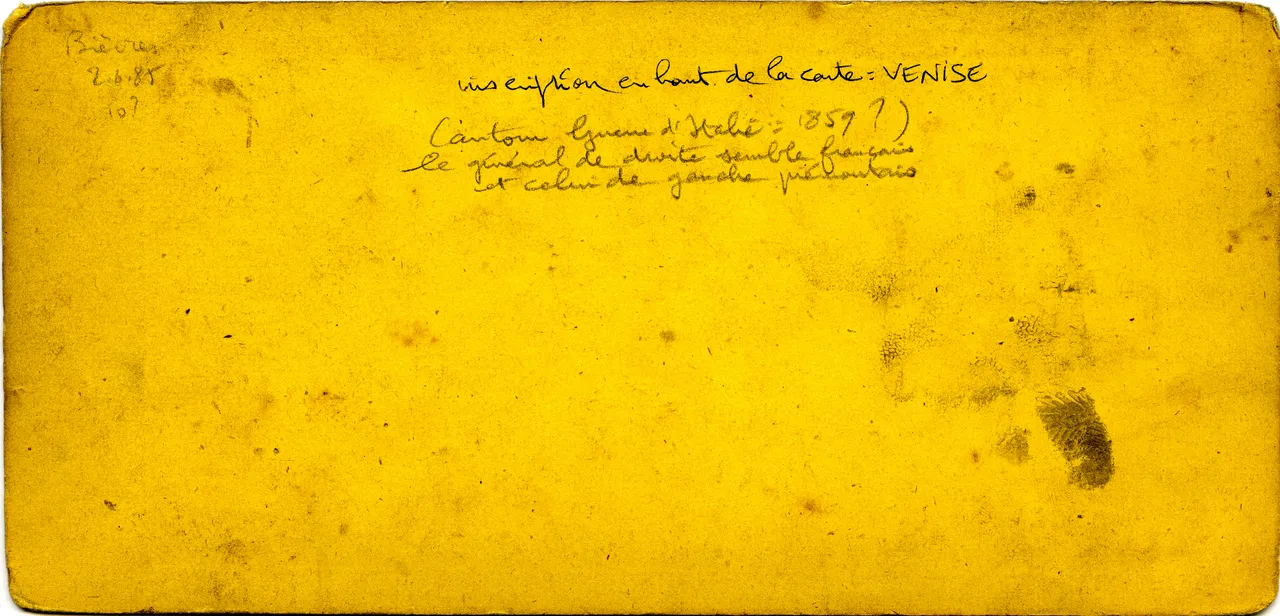 Bièvres
2.6.85
10?
inscription en haut de la carte = VENISE
(autour Guerre d'Italie = 1859 ?)
le général de droite semble français
et celui de gauche piémontais